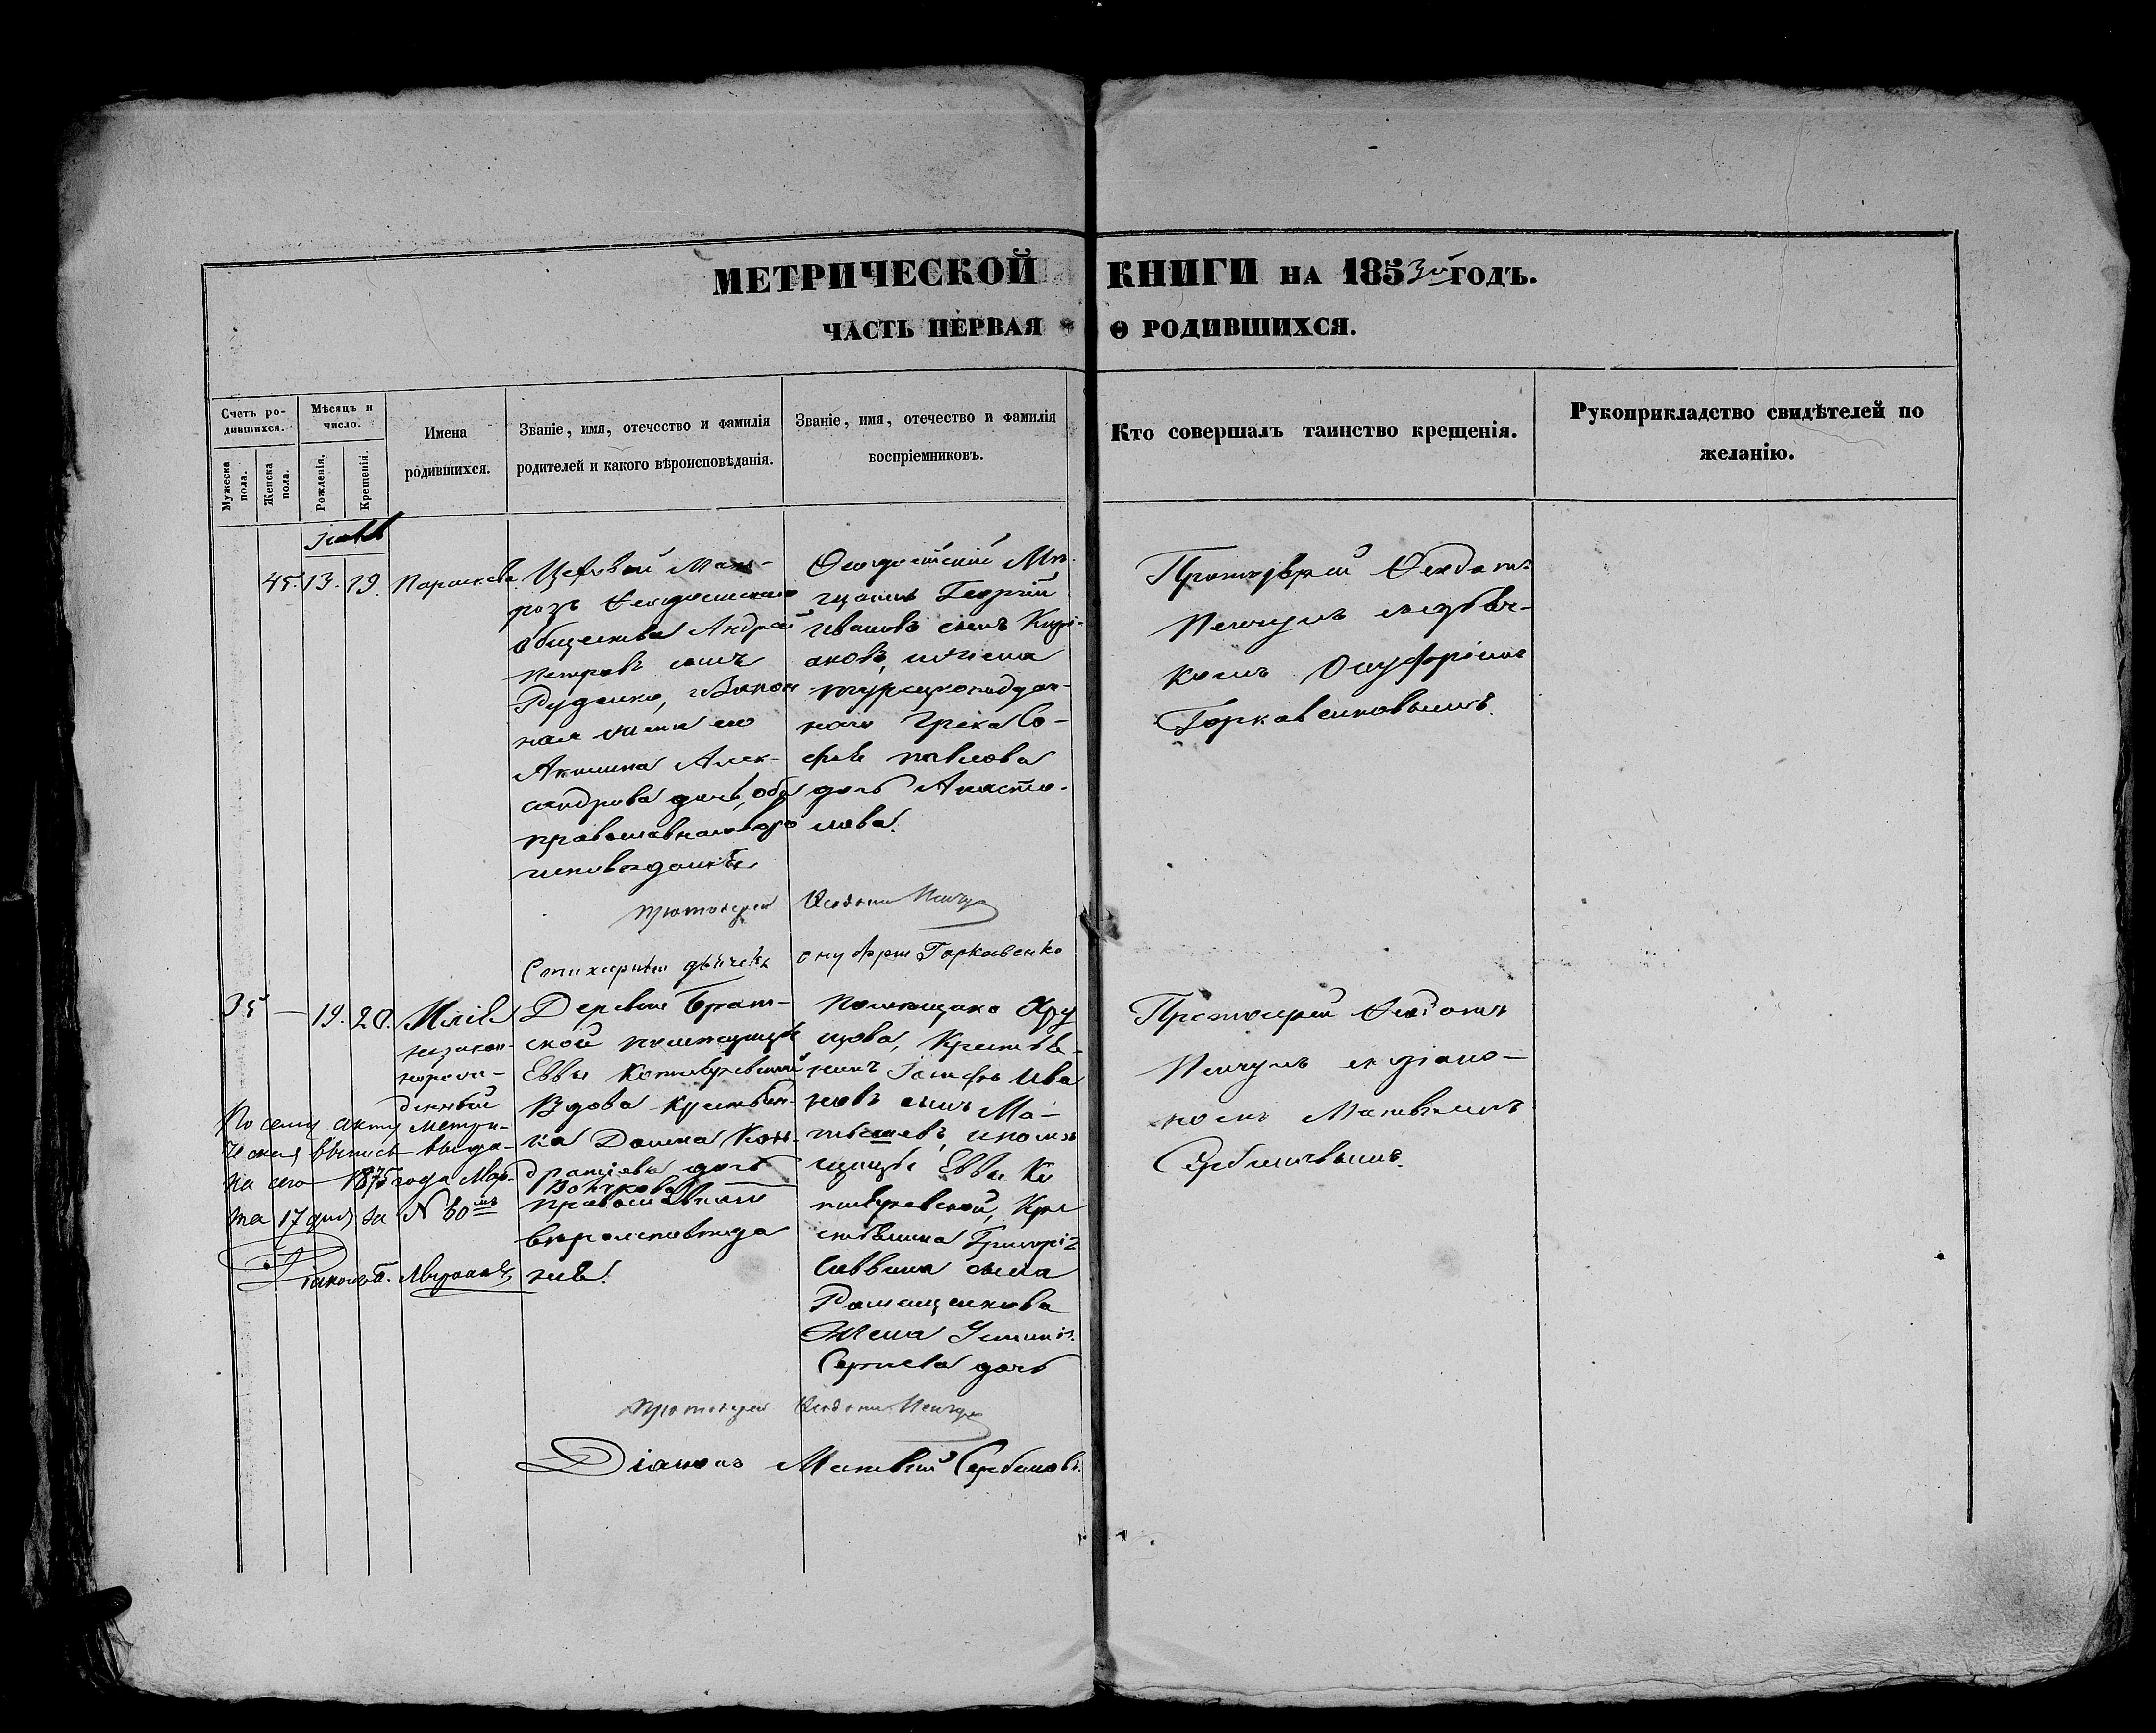 МЕТРИЧЕСКОЙ КНИГИ НА 1853й ГОДЪ.
ЧАСТЬ ПЕРВАЯ О РОДИВШИХСЯ.
Счетъ ро-
дившихся.
Мужеска
пола.
Женска
пола.
Мѣсяцъ и
число.
Рожденія.
Крещенія.
Имена
родившихся.
Званіе, имя, отечество и фамилія
родителей и какого вѣроисповѣданія.
Званіе, имя, отечество и фамилія
воспріемниковъ.
Кто совершалъ таинство крещенія.
Рукоприкладство свидѣтелей по
желанію.
45. 13. 19. Параскева
Цеховой
общества Андрей
Петровъ сынъ
Руденко, и закон
ная жена его
Акилина Алек-
сандрова дочь, оба
православнаго вѣро
исповѣданія
Феодосійскій Мѣ-
щанинъ Георгій
Ивановъ сынъ Кирі-
аковъ, и жена
турецкоподдан-
наго Грека Со-
фія Павлова
дочь Апосто-
лова.
Протоіерей Феодотъ
Онуфріемъ
Горкавенковымъ.
Протоіерей Феодотъ
Стихарный дьячекъ Онуфрій Горкавенко
35 — 19. 20. Илія
незакон-
норож-
денный
Деревни Брат-
ской помещицы
Еввы Котляревской
Вдова крестьян-
ка Домна Кон-
дратіева дочь
Волчкова
православнаго
вѣроисповѣда
нія.
Помѣщика Хру
щова, Крестья-
нинъ Іосифъ Ива
новъ сынъ Ма-
и помѣ
щицы Еввы Ко
тляревской, Кре
стьянина Григорія
Саввина сына
Ромащенкова
Жена
Сергіева дочь
Протоіерей Феодотъ
діако-
номъ Матвѣемъ
Сербиновымъ.
По сему акту метри-
ческая выпись выда-
на сего 1875 года Мар-
та 17 дня за № 60мъ
Протоіерей Феодотъ
Діаконъ Матвѣй Сербиновъ.